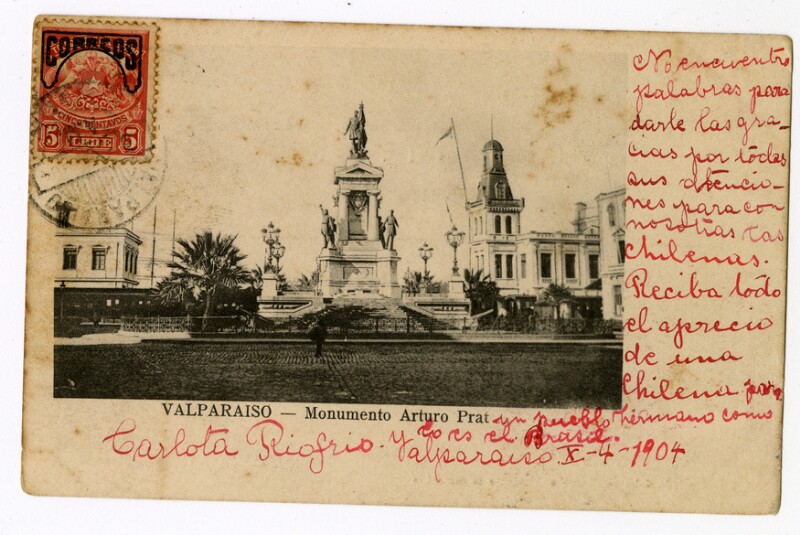 CORREOS
CINCO CENTAVOS
5 CHILE 5
No encuentro
palabras para
darle las gra-
cias por todas
sus atencio-
nes para con
nosotras las
chilenas.
Reciba todo
el aprecio
de una
Chilena para
un pueblo hermano como
lo es el Brasil.
VALPARAISO — Monumento Arturo Prat
Carlota Riofrio. y
Valparaiso X-4-1904